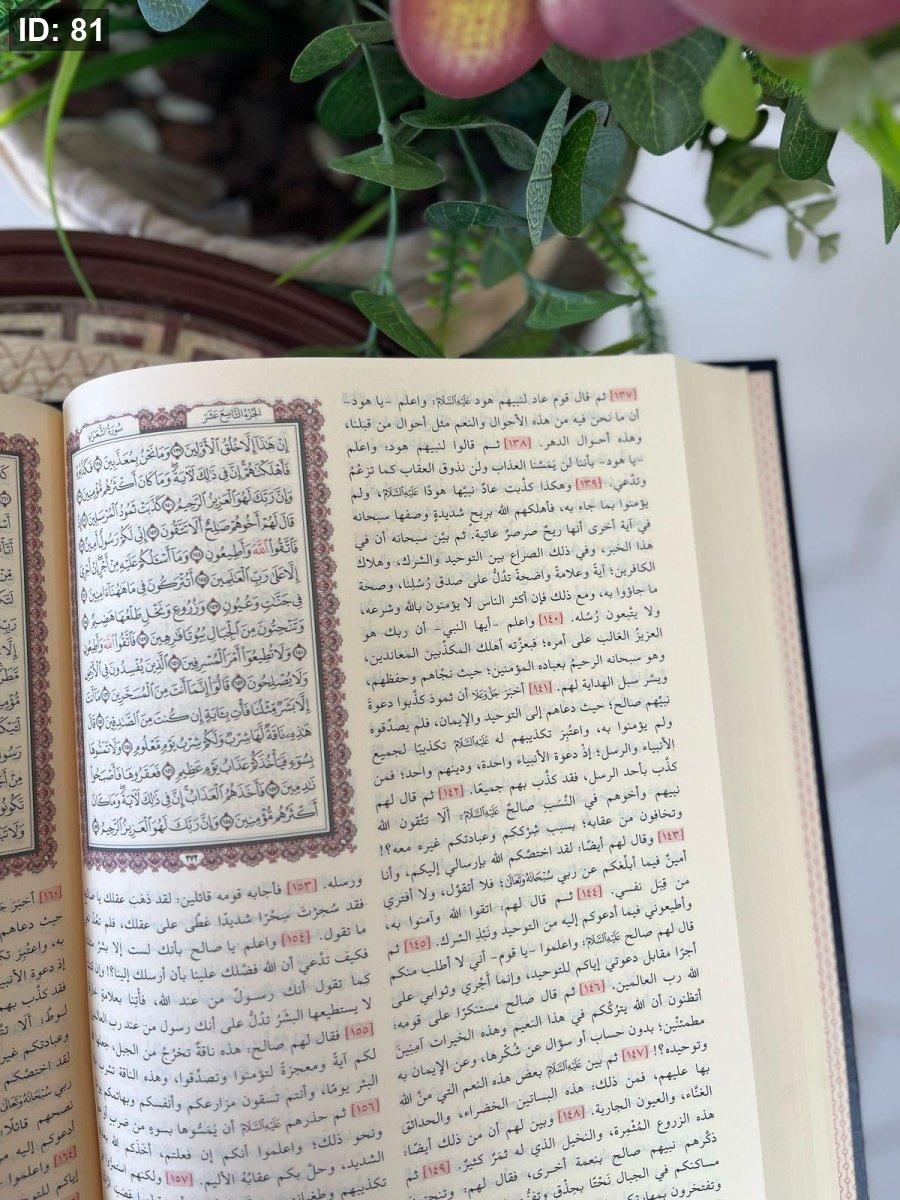 ID: 81
الجزء التاسع عشر
سورة الشعراء
إِنْ هَٰذَا إِلَّا خُلُقُ الْأَوَّلِينَ ١٣٧ وَمَا نَحْنُ بِمُعَذَّبِينَ ١٣٨ فَكَذَّبُوهُ
فَأَهْلَكْنَاهُمْ إِنَّ فِي ذَٰلِكَ لَآيَةً وَمَا كَانَ أَكْثَرُهُم مُّؤْمِنِينَ ١٣٩
وَإِنَّ رَبَّكَ لَهُوَ الْعَزِيزُ الرَّحِيمُ ١٤٠ كَذَّبَتْ ثَمُودُ الْمُرْسَلِينَ ١٤١
إِذْ قَالَ لَهُمْ أَخُوهُمْ صَالِحٌ أَلَا تَتَّقُونَ ١٤٢ إِنِّي لَكُمْ رَسُولٌ أَمِينٌ ١٤٣
فَاتَّقُوا اللَّهَ وَأَطِيعُونِ ١٤٤ وَمَا أَسْأَلُكُمْ عَلَيْهِ مِنْ أَجْرٍ إِنْ أَجْرِيَ
إِلَّا عَلَىٰ رَبِّ الْعَالَمِينَ ١٤٥ أَتُتْرَكُونَ فِي مَا هَاهُنَا آمِنِينَ ١٤٦
فِي جَنَّاتٍ وَعُيُونٍ ١٤٧ وَزُرُوعٍ وَنَخْلٍ طَلْعُهَا هَضِيمٌ ١٤٨
وَتَنْحِتُونَ مِنَ الْجِبَالِ بُيُوتًا فَارِهِينَ ١٤٩ فَاتَّقُوا اللَّهَ وَأَطِيعُونِ
١٥٠ وَلَا تُطِيعُوا أَمْرَ الْمُسْرِفِينَ ١٥١ الَّذِينَ يُفْسِدُونَ فِي الْأَرْضِ
وَلَا يُصْلِحُونَ ١٥٢ قَالُوا إِنَّمَا أَنتَ مِنَ الْمُسَحَّرِينَ ١٥٣ مَا أَنتَ
إِلَّا بَشَرٌ مِّثْلُنَا فَأْتِ بِآيَةٍ إِن كُنتَ مِنَ الصَّادِقِينَ ١٥٤ قَالَ
هَٰذِهِ نَاقَةٌ لَّهَا شِرْبٌ وَلَكُمْ شِرْبُ يَوْمٍ مَّعْلُومٍ ١٥٥ وَلَا تَمَسُّوهَا
بِسُوءٍ فَيَأْخُذَكُمْ عَذَابُ يَوْمٍ عَظِيمٍ ١٥٦ فَعَقَرُوهَا فَأَصْبَحُوا
نَادِمِينَ ١٥٧ فَأَخَذَهُمُ الْعَذَابُ إِنَّ فِي ذَٰلِكَ لَآيَةً وَمَا كَانَ
أَكْثَرُهُم مُّؤْمِنِينَ ١٥٨ وَإِنَّ رَبَّكَ لَهُوَ الْعَزِيزُ الرَّحِيمُ ١٥٩
٣٧٣
[١٣٧] ثم قال قوم عاد لنبيهم هود عليه السلام: واعلم -يا هود-
أن ما نحن فيه من هذه الأحوال والنعم مثل أحوال من قبلنا،
وهذه أحوال الدهر. [١٣٨] ثم قالوا لنبيهم هود: واعلم
-يا هود- بأننا لن يَمَسَّنا العذاب ولن نذوق العقاب كما تزعُمُ
وتدَّعي. [١٣٩] وهكذا كذَّبت عادٌ نبيَّها هودًا عليه السلام، ولم
يؤمنوا بما جاء به، فأهلكهم الله بريح شديدةٍ وصفها سبحانه
في آية أخرى أنها ريحٌ صرصرٌ عاتية. ثم بيَّن سبحانه أن في
هذا الخبر، وفي ذلك الصراع بين التوحيد والشرك، وهلاك
الكافرين؛ آيةً وعلامةً واضحةً تدُلُّ على صدق رُسُلِنا، وصحة
ما جاؤوا به، ومع ذلك فإن أكثر الناس لا يؤمنون بالله وشرعه،
ولا يتَّبعون رُسُله. [١٤٠] واعلم -أيها النبي- أن ربك هو
العزيزُ الغالب على أمره؛ فبعزَّته أهلك المكذِّبين المعاندين،
وهو سبحانه الرحيمُ بعباده المؤمنين؛ حيث نجَّاهم وحفظهم،
ويسَّر سبل الهداية لهم. [١٤١] أخبَرَ جل وعلا أن ثمودَ كذَّبوا دعوة
نبيِّهم صالح؛ حيث دعاهم إلى التوحيد والإيمان، فلم يصدِّقوه
ولم يؤمنوا به، واعتُبِرَ تكذيبهم له عليه السلام تكذيبًا لجميع
الأنبياء والرسل؛ إذْ دعوة الأنبياء واحدة، ودينهم واحد؛ فمن
كذَّب بأحد الرسل، فقد كذَّب بهم جميعًا. [١٤٢] ثم قال لهم
نبيهم وأخوهم في النَّسَب صالحٌ عليه السلام: ألا تتَّقون الله
وتخافون من عقابه؛ بسبب شِرْكِكم وعبادتكم غيره معه؟!
[١٤٣] وقال لهم أيضًا: لقد اختصَّكم الله بإرسالي إليكم، وأنا
أمينٌ فيما أبلِّغكم عن ربي سبحانه وتعالى؛ فلا أتقوَّل، ولا أفتري
من قِبَل نفسي. [١٤٤] ثم قال لهم: اتقوا الله وآمنوا به،
وأطيعوني فيما أدعوكم إليه من التوحيد ونَبْذِ الشرك. [١٤٥] ثم
قال لهم صالح عليه السلام: واعلموا -يا قوم- أني لا أطلب منكم
أجرًا مقابل دعوتي إياكم للتوحيد، وإنما أجْري وثوابي على
الله رب العالمين. [١٤٦] ثم قال صالح مستنكرًا على قومه:
أتظنون أن الله يترُكُكم في هذا النعيم وهذه الخيرات آمنينَ
مطمئنِّين؛ بدون حساب أو سؤال عن شُكْرها، وعن الإيمان به
وتوحيده؟! [١٤٧] ثم بين عليه السلام بعضَ هذه النعم التي منَّ الله
بها عليهم، فمن ذلك: هذه البساتين الخضراء، والحدائق
الغنَّاء، والعيون الجارية. [١٤٨] وبين لهم أن من ذلك أيضًا:
هذه الزروع المُثْمِرة، والنخيل الذي له ثمَرٌ كثيرٌ. [١٤٩] ثم
ذكَّرهم نبيهم صالح بنعمة أخرى، فقال لهم: وتنحِتون
مساكنكم في الجبال نَحْتًا بحِذْقٍ
وتفتخرون
ورسله. [١٥٣] فأجابه قومه قائلين: لقد ذهَبَ عقلك يا صالح
فقد سُحِرْتَ سِحْرًا شديدًا غطَّى على عقلك، فلم تعُدْ
ما تقول. [١٥٤] واعلم يا صالح بأنك لست إلا بشرٌ
فكيف تدَّعي أن الله فضَّلك علينا بأن أرسلك إلينا؟! وإن كنت
كما تقول أنك رسولٌ من عند الله، فأتِنا بعلامةٍ
لا يستطيعها البشَرُ تدُلُّ على أنك رسول من عند رب
[١٥٥] فقال لهم صالح: هذه ناقةٌ تخرُجُ من الجبل،
لكم آيةً ومعجزةً لتؤمنوا وتصدِّقوا، وهذه الناقة تشرب
البئر يومًا، وأنتم تسقون مزارعكم وأنفسكم وبهائمكم
[١٥٦] ثم حذرهم عليه السلام أن يَمَسُّوها بسوءٍ من ضربٍ أو
ونحو ذلك؛ واعلموا أنكم إن فعلتم، أخذكم الله
الشديد، وحلَّ بكم عقابُهُ الأليم. [١٥٧] ولكنهم
تكذيبهم
[١٦٠] أخبَرَ
حيث دعاهم
به، واعتُبِرَ
إذ دعوة الأنبياء
فقد كذَّب بهم
لوطٌ: ألا
وعبادتكم غير
لقد اختصَّكم
ربي سبحانه وتعالى
نصحهم قائلًا
أدعوكم إليه
[١٦٤] واعلموا
إياكم